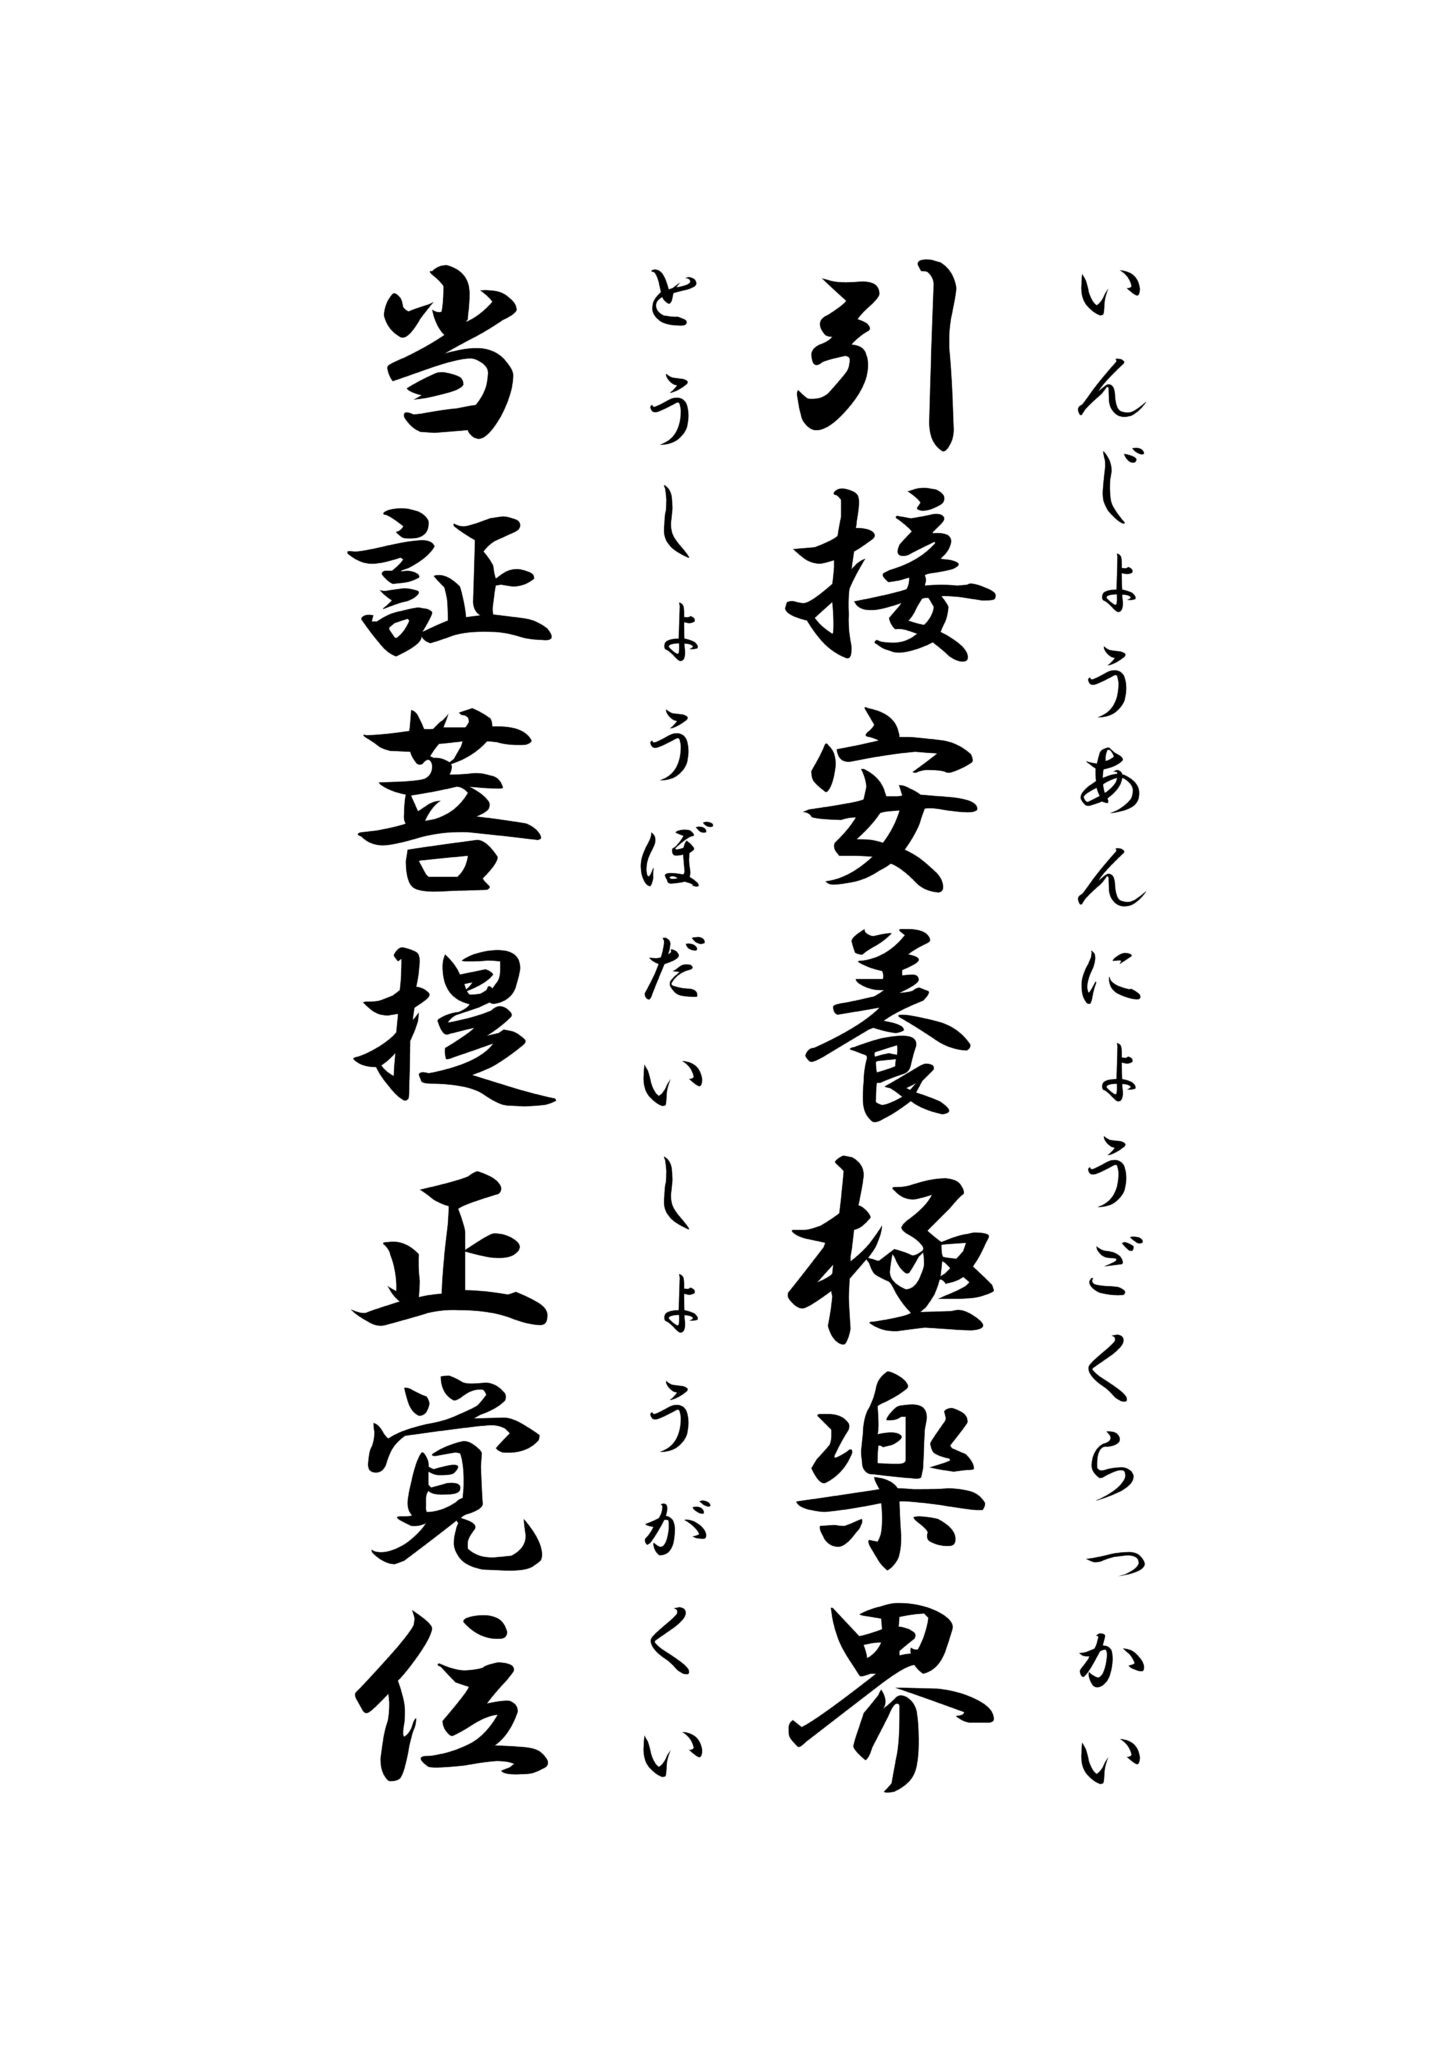 いんじょうあんにょうごくらっかい
引接安養極楽界
とうしょうぼだいしょうがくい
当証菩提正覚位